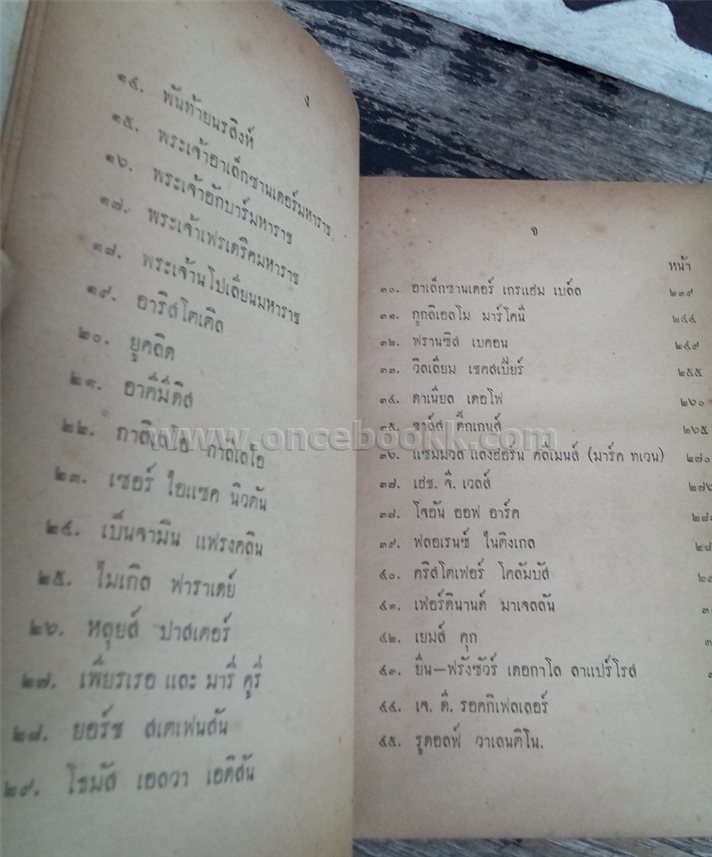 ง
๑๔. พันท้ายนรสิงห์
๑๕. พระเจ้าอาเล็กซานเดอร์มหาราช
๑๖. พระเจ้าอักบาร์มหาราช
๑๗. พระเจ้าเฟรเดริคมหาราช
๑๘. พระเจ้านโปเลียนมหาราช
๑๙. อาริสโตเติล
๒๐. ยูคลิด
๒๑. อาคีมีดิส
๒๒. กาลิเลโอ กาลิเลโอ
๒๓. เซอร์ ไอแซค นิวตัน
๒๔. เบ็นจามิน แฟรงคลิน
๒๕. ไมเกิล ฟาราเดย์
๒๖. หลุยส์ ปาสเตอร์
๒๗. เพียรเรอ และ มารี คูรี่
๒๘. ยอร์ช สเตเฟนสัน
๒๙. โธมัส เอลวา เอดิสัน
จ
หน้า
๓๐. อาเล็กซานเดอร์ เกรแฮม เบล์ล ๒๓๙
๓๑. กูกลิเอลโม มาร์โคนี ๒๔๔
๓๒. ฟรานซิส เบคอน ๒๔๙
๓๓. วิลเลียม เชคสเปียร์ ๒๕๕
๓๔. ดาเนียล เดอโฟ ๒๖๐
๓๕. ชาล์ส ดิ๊กเกนส์ ๒๖๕
๓๖. แซมมวล แลงฮอร์น คลีเมนส์ (มาร์ค ทเวน) ๒๗๐
๓๗. เฮช. จี. เวลล์ ๒๗๖
๓๘. โจอัน ออฟ อาร์ค
๓๙. ฟลอเรนซ์ ไนติงเกล
๔๐. คริสโตเฟอร์ โคลัมบัส
๔๑. เฟอร์ดินานด์ มาเจลลัน
๔๒. เยมส์ คุก
๔๓. ยีน—ฟรังซัวร์ เดอกาโล ลาแปร์โรส
๔๔. เจ. ดี. รอคกิเฟลเลอร์
๔๕. รูดอลฟ์ วาเลนติโน.
www.oncebookk.com